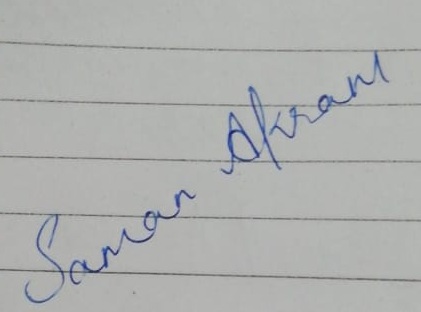 Saman Akram